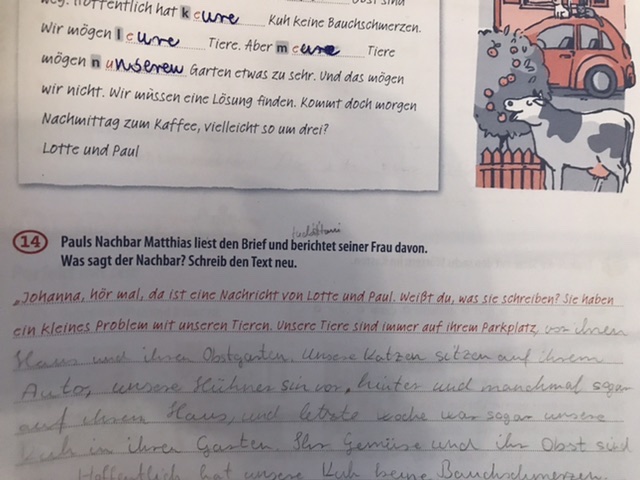 weg. Hoffentlich hat k eure Kuh keine Bauchschmerzen.
Wir mögen l eure Tiere. Aber m eure Tiere
mögen n unseren Garten etwas zu sehr. Und das mögen
wir nicht. Wir müssen eine Lösung finden. Kommt doch morgen
Nachmittag zum Kaffee, vielleicht so um drei?
Lotte und Paul
14 Pauls Nachbar Matthias liest den Brief und berichtet seiner Frau davon.
Was sagt der Nachbar? Schreib den Text neu.
„Johanna, hör mal, da ist eine Nachricht von Lotte und Paul. Weißt du, was sie schreiben? Sie haben
ein kleines Problem mit unseren Tieren. Unsere Tiere sind immer auf ihrem Parkplatz, vor ihrem
Haus und ihren Obstgarten. Unsere Katzen sitzen auf ihrem
Auto, unsere Hühner sin vor, hinter und manchmal sogar
auf ihrem Haus, und letzte woche war sogar unsere
Kuh in ihren Garten. Ihr Gemüse und ihr Obst sind
Hoffentlich hat unsere Kuh keine Bauchschmerzen